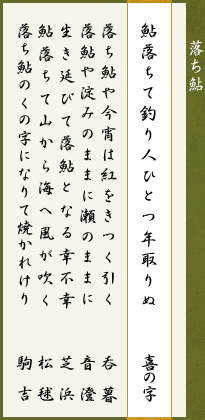 落ち鮎
鮎落ちて釣り人ひとつ年取りぬ 喜の字
落ち鮎や今宵は紅をきつく引く 呑暮
落鮎や淀みのままに瀬のままに 音澄
生き延びて落鮎となる幸不幸 芝浜
鮎落ちて山から海へ風が吹く 松毬
落ち鮎のくの字になりて焼かれけり 駒吉